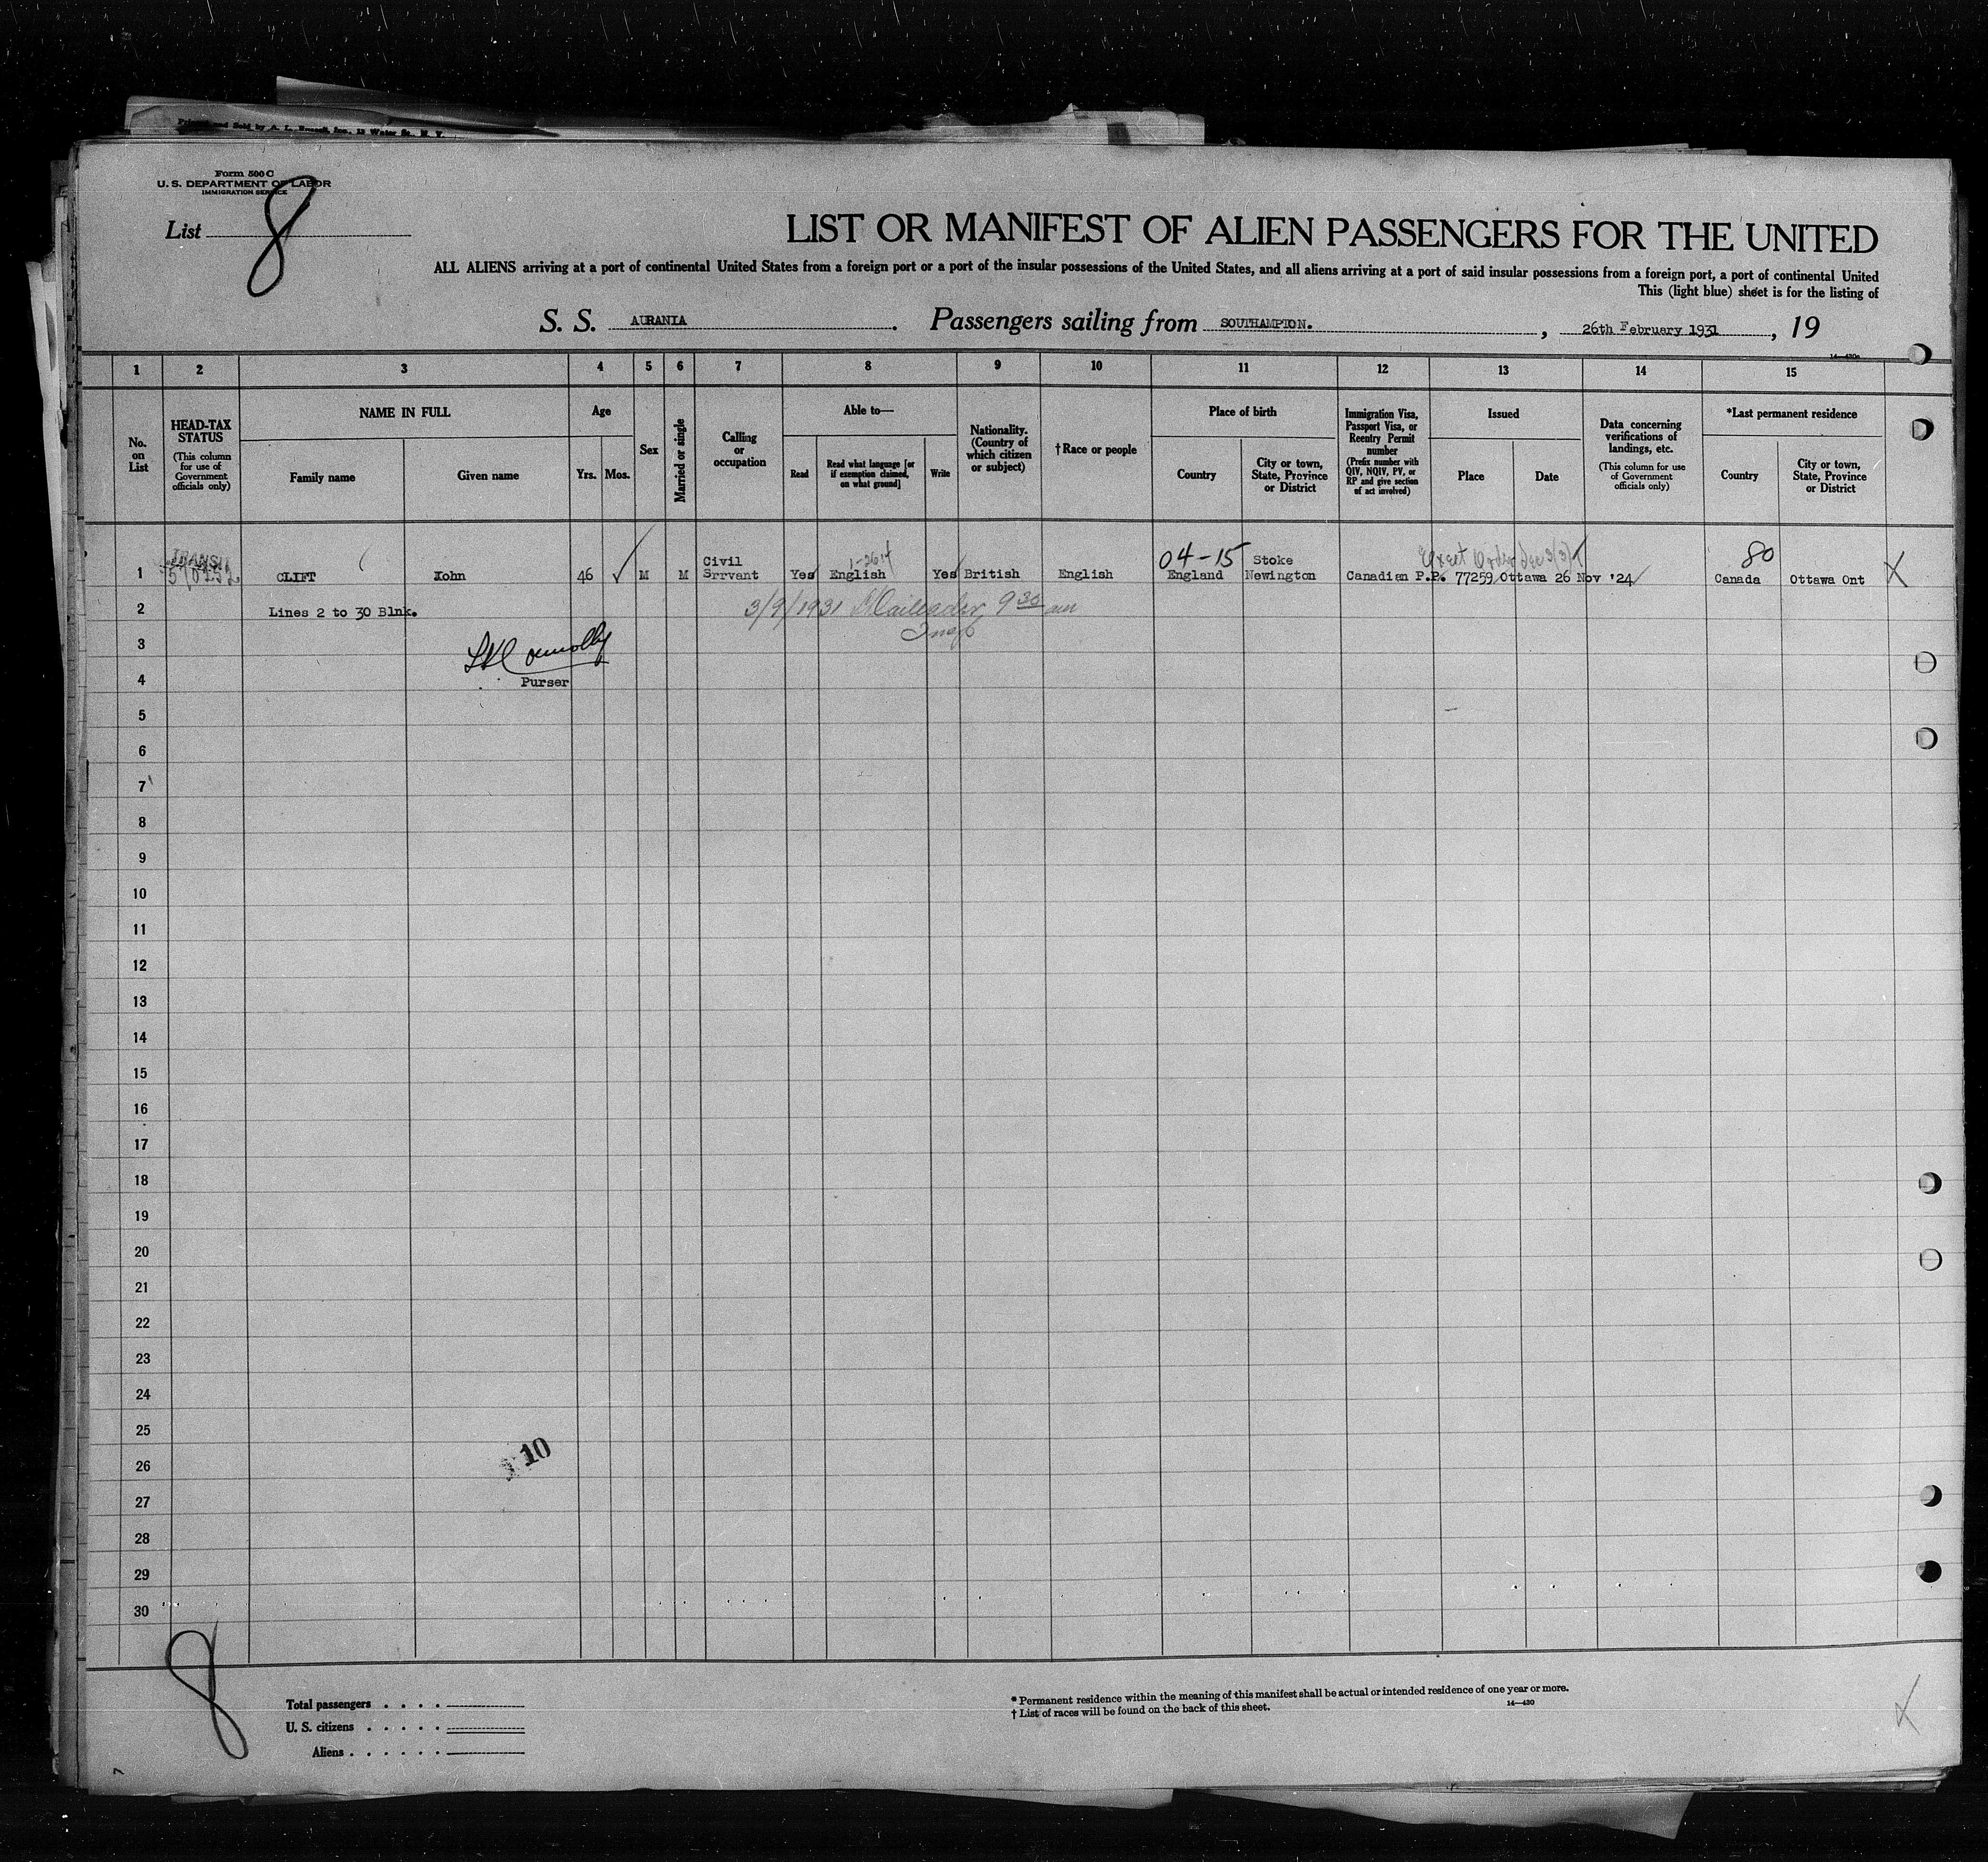 Printed and Sold by A. L. Russell, Inc., 12 Water St. N. Y.
Form 500 C
U. S. DEPARTMENT OF LABOR
IMMIGRATION SERVICE
List 8
LIST OR MANIFEST OF ALIEN PASSENGERS FOR THE UNITED
ALL ALIENS arriving at a port of continental United States from a foreign port or a port of the insular possessions of the United States, and all aliens arriving at a port of said insular possessions from a foreign port, a port of continental United
This (light blue) sheet is for the listing of
S. S. AURANIA . Passengers sailing from SOUTHAMPTON. , 26th February 1931 , 19
14—430a
1 2 3 4 5 6 7 8 9 10 11 12 13 14 15
No. on List
HEAD-TAX STATUS
(This column for use of Government officials only)
NAME IN FULL
Family name
Given name
Age
Yrs.
Mos.
Sex
Married or single
Calling or occupation
Able to—
Read
Read what language [or if exemption claimed, on what ground]
Write
Nationality. (Country of which citizen or subject)
†Race or people
Place of birth
Country
City or town, State, Province or District
Immigration Visa, Passport Visa, or Reentry Permit number
(Prefix number with QIV, NQIV, PV, or RP and give section of act involved)
Issued
Place
Date
Data concerning verifications of landings, etc.
(This column for use of Government officials only)
*Last permanent residence
Country
City or town, State, Province or District
TRANSIT
04-15
80
1 CLIFT Xohn 46 M M Civil Srrvant Yes English Yes British English England Stoke Newington Canadian P.P. 77259 Ottawa 26 Nov '24 Canada Ottawa Ont X
2 Lines 2 to 30 Blnk. 3/9/1931 9 30 am
3 Insp
4 Purser
5
6
7
8
9
10
11
12
13
14
15
16
17
18
19
20
21
22
23
24
25
10
26
27
28
29
30
8
Total passengers . . . .
U. S. citizens . . . . .
Aliens . . . . . .
* Permanent residence within the meaning of this manifest shall be actual or intended residence of one year or more.
† List of races will be found on the back of this sheet.
14—430
X